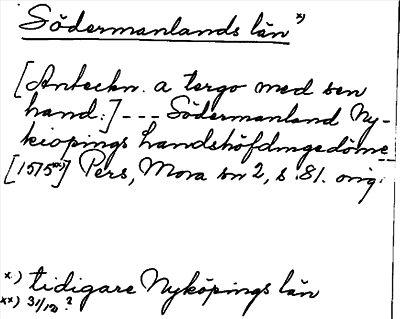 Södermanlands län x)
[Anteckn. a tergo med sen
hand:] --- Södermanland Ny-
kiöpings Landshöfdingedöme
[1575 xx)] Pers, Mora sn 2, s. 81. orig.
x) tidigare Nyköpings län
xx) 31/12 ?